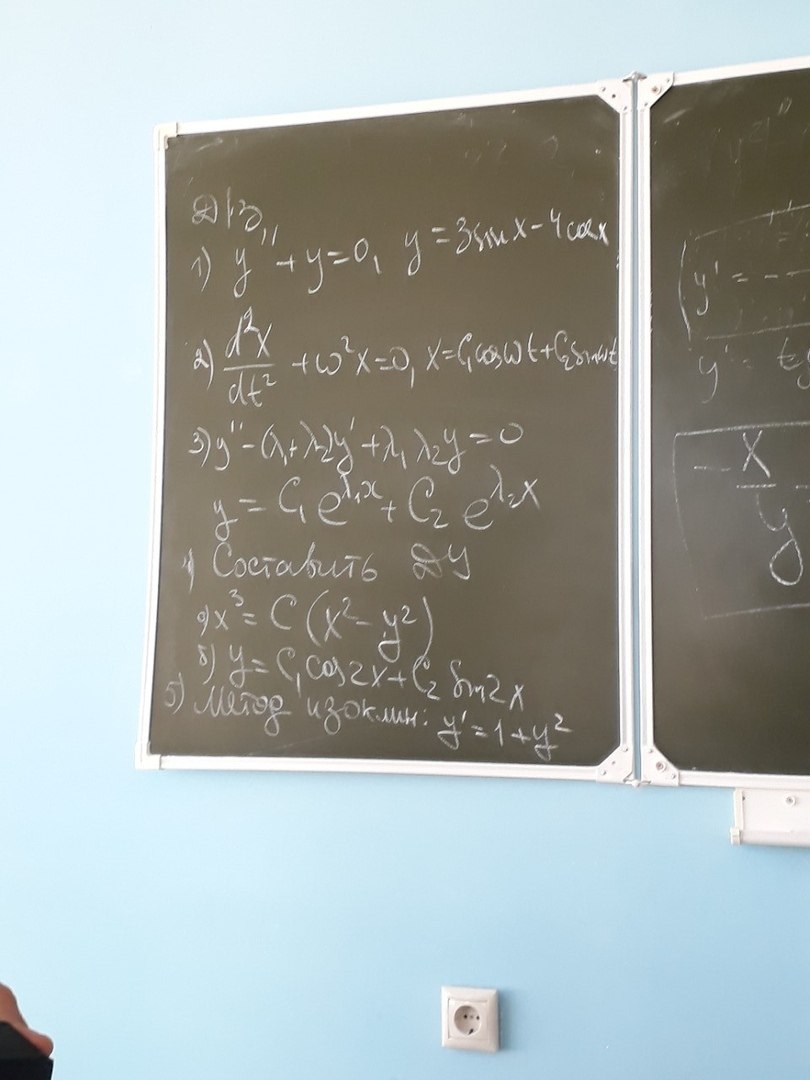 Д/З
1) y'' + y = 0, y = 3sinx - 4cosx
2) d²x/dt² + ω²x = 0, x = C₁cosωt + C₂sinωt
3) y'' - (λ₁ + λ₂)y' + λ₁λ₂y = 0
y = C₁e^λ₁x + C₂e^λ₂x
4) Составить ДУ
а) x³ = C(x² - y²)
б) y = C₁cos2x + C₂sin2x
5) Метод изоклин: y' = 1 + y²
y' = -
y' =
- x/y